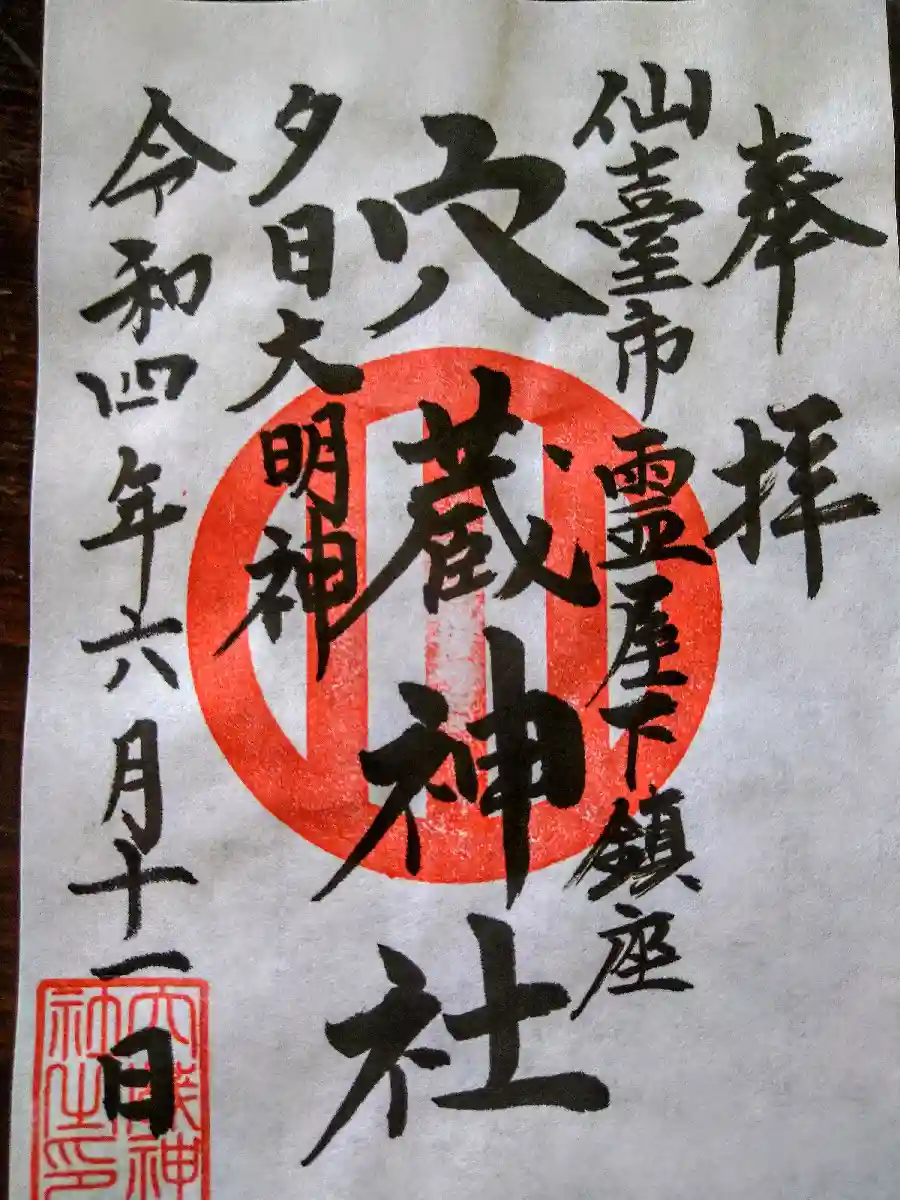 奉拝
仙臺市霊屋下鎮座
穴蔵神社
夕日大明神
令和四年六月十一日
穴蔵神
社之印